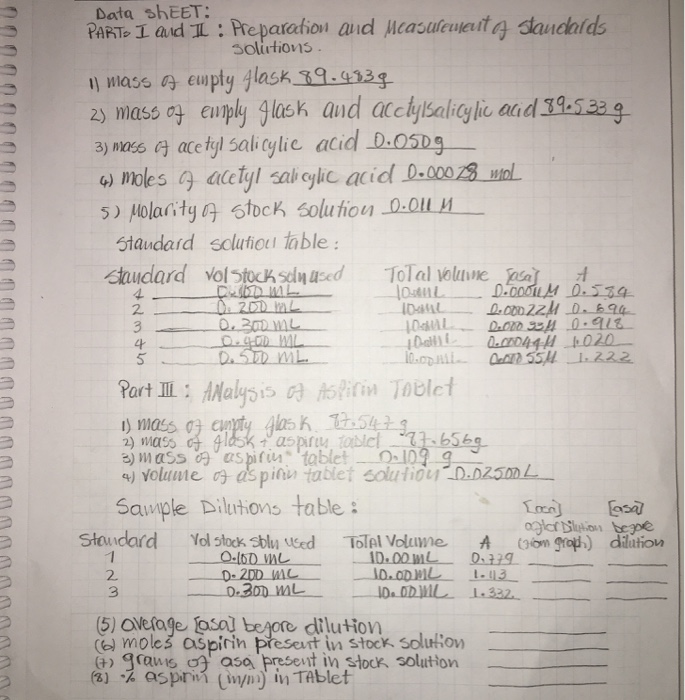 Data SHEET:
PARTs I and II : Preparation and Measurement of standards
solutions.
1) mass of empty flask 89.483g
2) mass of emply flask and acetylsalicylic acid 89.533 g
3) mass of acetyl salicylic acid 0.050g
4) moles of acetyl salicylic acid 0.00028 mol
5) Molarity of stock solution 0.011 M
Standard solution table:
Standard vol stock soln used Total volume [asa] A
1 0.100 mL 10.00mL 0.00011M 0.584
2 0.200 mL 10.00mL 0.00022M 0.694
3 0.300 mL 10.00mL 0.00033M 0.918
4 0.400 mL 10.00mL 0.00044M 1.020
5 0.500 mL 10.00mL 0.00055M 1.222
Part III : Analysis of Aspirin Tablet
1) mass of empty flask 87.547g
2) mass of flask + aspirin tablet 87.656g
3) mass of aspirin tablet 0.109 g
4) volume of aspirin tablet solution 0.02500L
Sample Dilutions table :
[asa] [asa]
after Dilution before
Standard Vol stock soln used Total Volume A (from graph) dilution
1 0.100 mL 10.00mL 0.779
2 0.200 mL 10.00mL 1.113
3 0.300 mL 10.00mL 1.332
(5) average [asa] before dilution
(6) moles aspirin present in stock solution
(7) grams of asa present in stock solution
(8) % aspirin (m/m) in TAblet